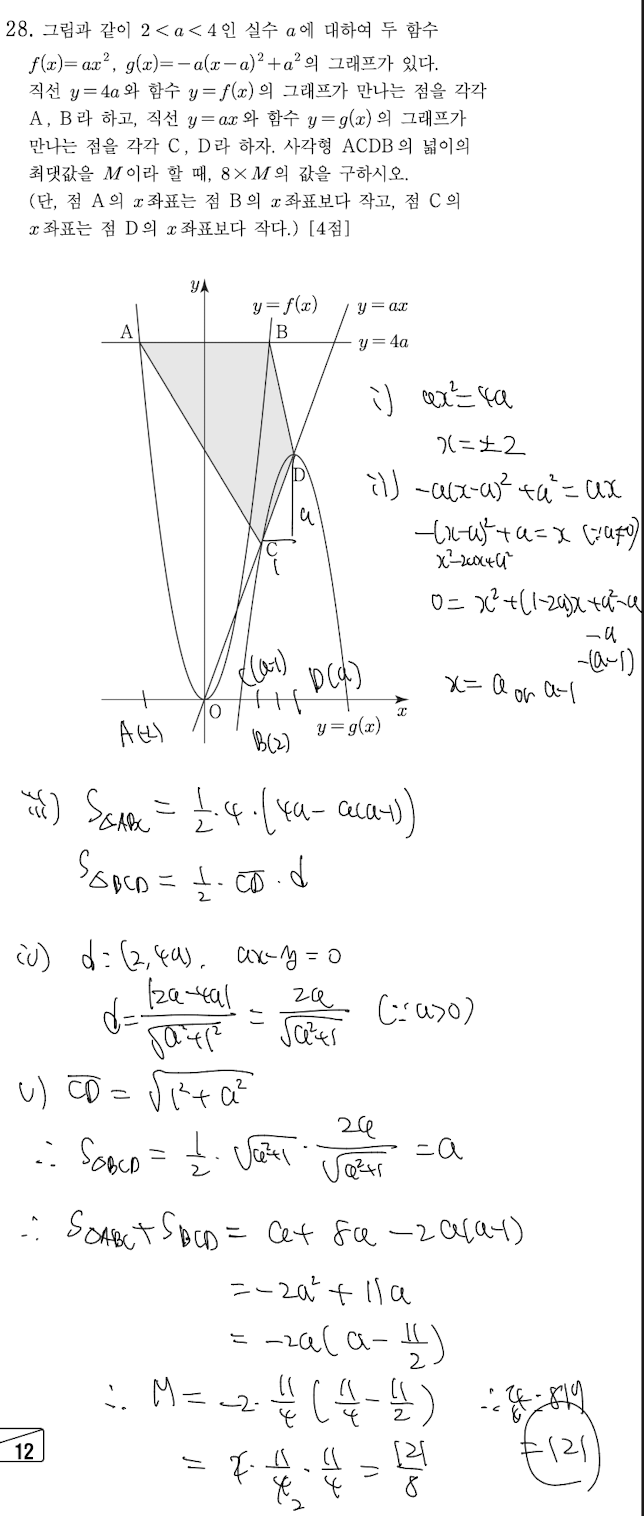 28. 그림과 같이 2<a<4인 실수 a에 대하여 두 함수
f(x)=ax², g(x)=-a(x-a)²+a²의 그래프가 있다.
직선 y=4a와 함수 y=f(x)의 그래프가 만나는 점을 각각
A, B라 하고, 직선 y=ax와 함수 y=g(x)의 그래프가
만나는 점을 각각 C, D라 하자. 사각형 ACDB의 넓이의
최댓값을 M이라 할 때, 8×M의 값을 구하시오.
(단, 점 A의 x좌표는 점 B의 x좌표보다 작고, 점 C의
x좌표는 점 D의 x좌표보다 작다.) [4점]
y
y=f(x)
y=ax
A
B
y=4a
D
a
C
1
C(a-1)
D(a)
O
x
B(2)
y=g(x)
i) ax²=4a
x=±2
ii) -a(x-a)²+a²=ax
-(x-a)²+a=x (∵a≠0)
x²-2ax+a²
0=x²+(1-2a)x+a²-a
-a
-(a-1)
x=a or a-1
iii) S△ABC = 1/2·4·(4a-a(a-1))
S△BCD = 1/2·CD·d
iv) d:(2,4a), ax-y=0
d=|2a-4a|/√(a²+1²) = 2a/√(a²+1) (∵a>0)
v) CD = √(1²+a²)
∴ S△BCD = 1/2·√(a²+1)·2a/√(a²+1) = a
∴ S△ABC+S△BCD = a+8a-2a(a-1)
=-2a²+11a
=-2a(a-11/2)
∴ M=-2·11/4(11/4-11/2)
=2·11/4·11/4=121/8
∴ 8M
=121
12